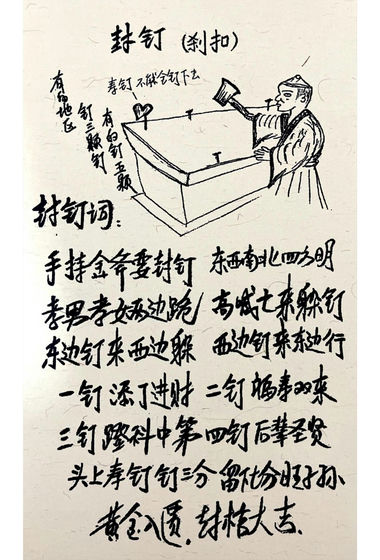 封钉 (刹扣)
孝钉不能全钉下去
有的地区
钉三颗钉
有的钉五颗
封钉词：
手持金斧要封钉 东西南北四方明
孝男孝女两边跪 来躲钉
东边钉来西边躲 西边钉来东边行
一钉添丁进财 二钉福寿双来
三钉科中第 四钉后辈圣贤
头上孝钉钉三分 留七分旺子孙
黄金入匮，封棺大吉.